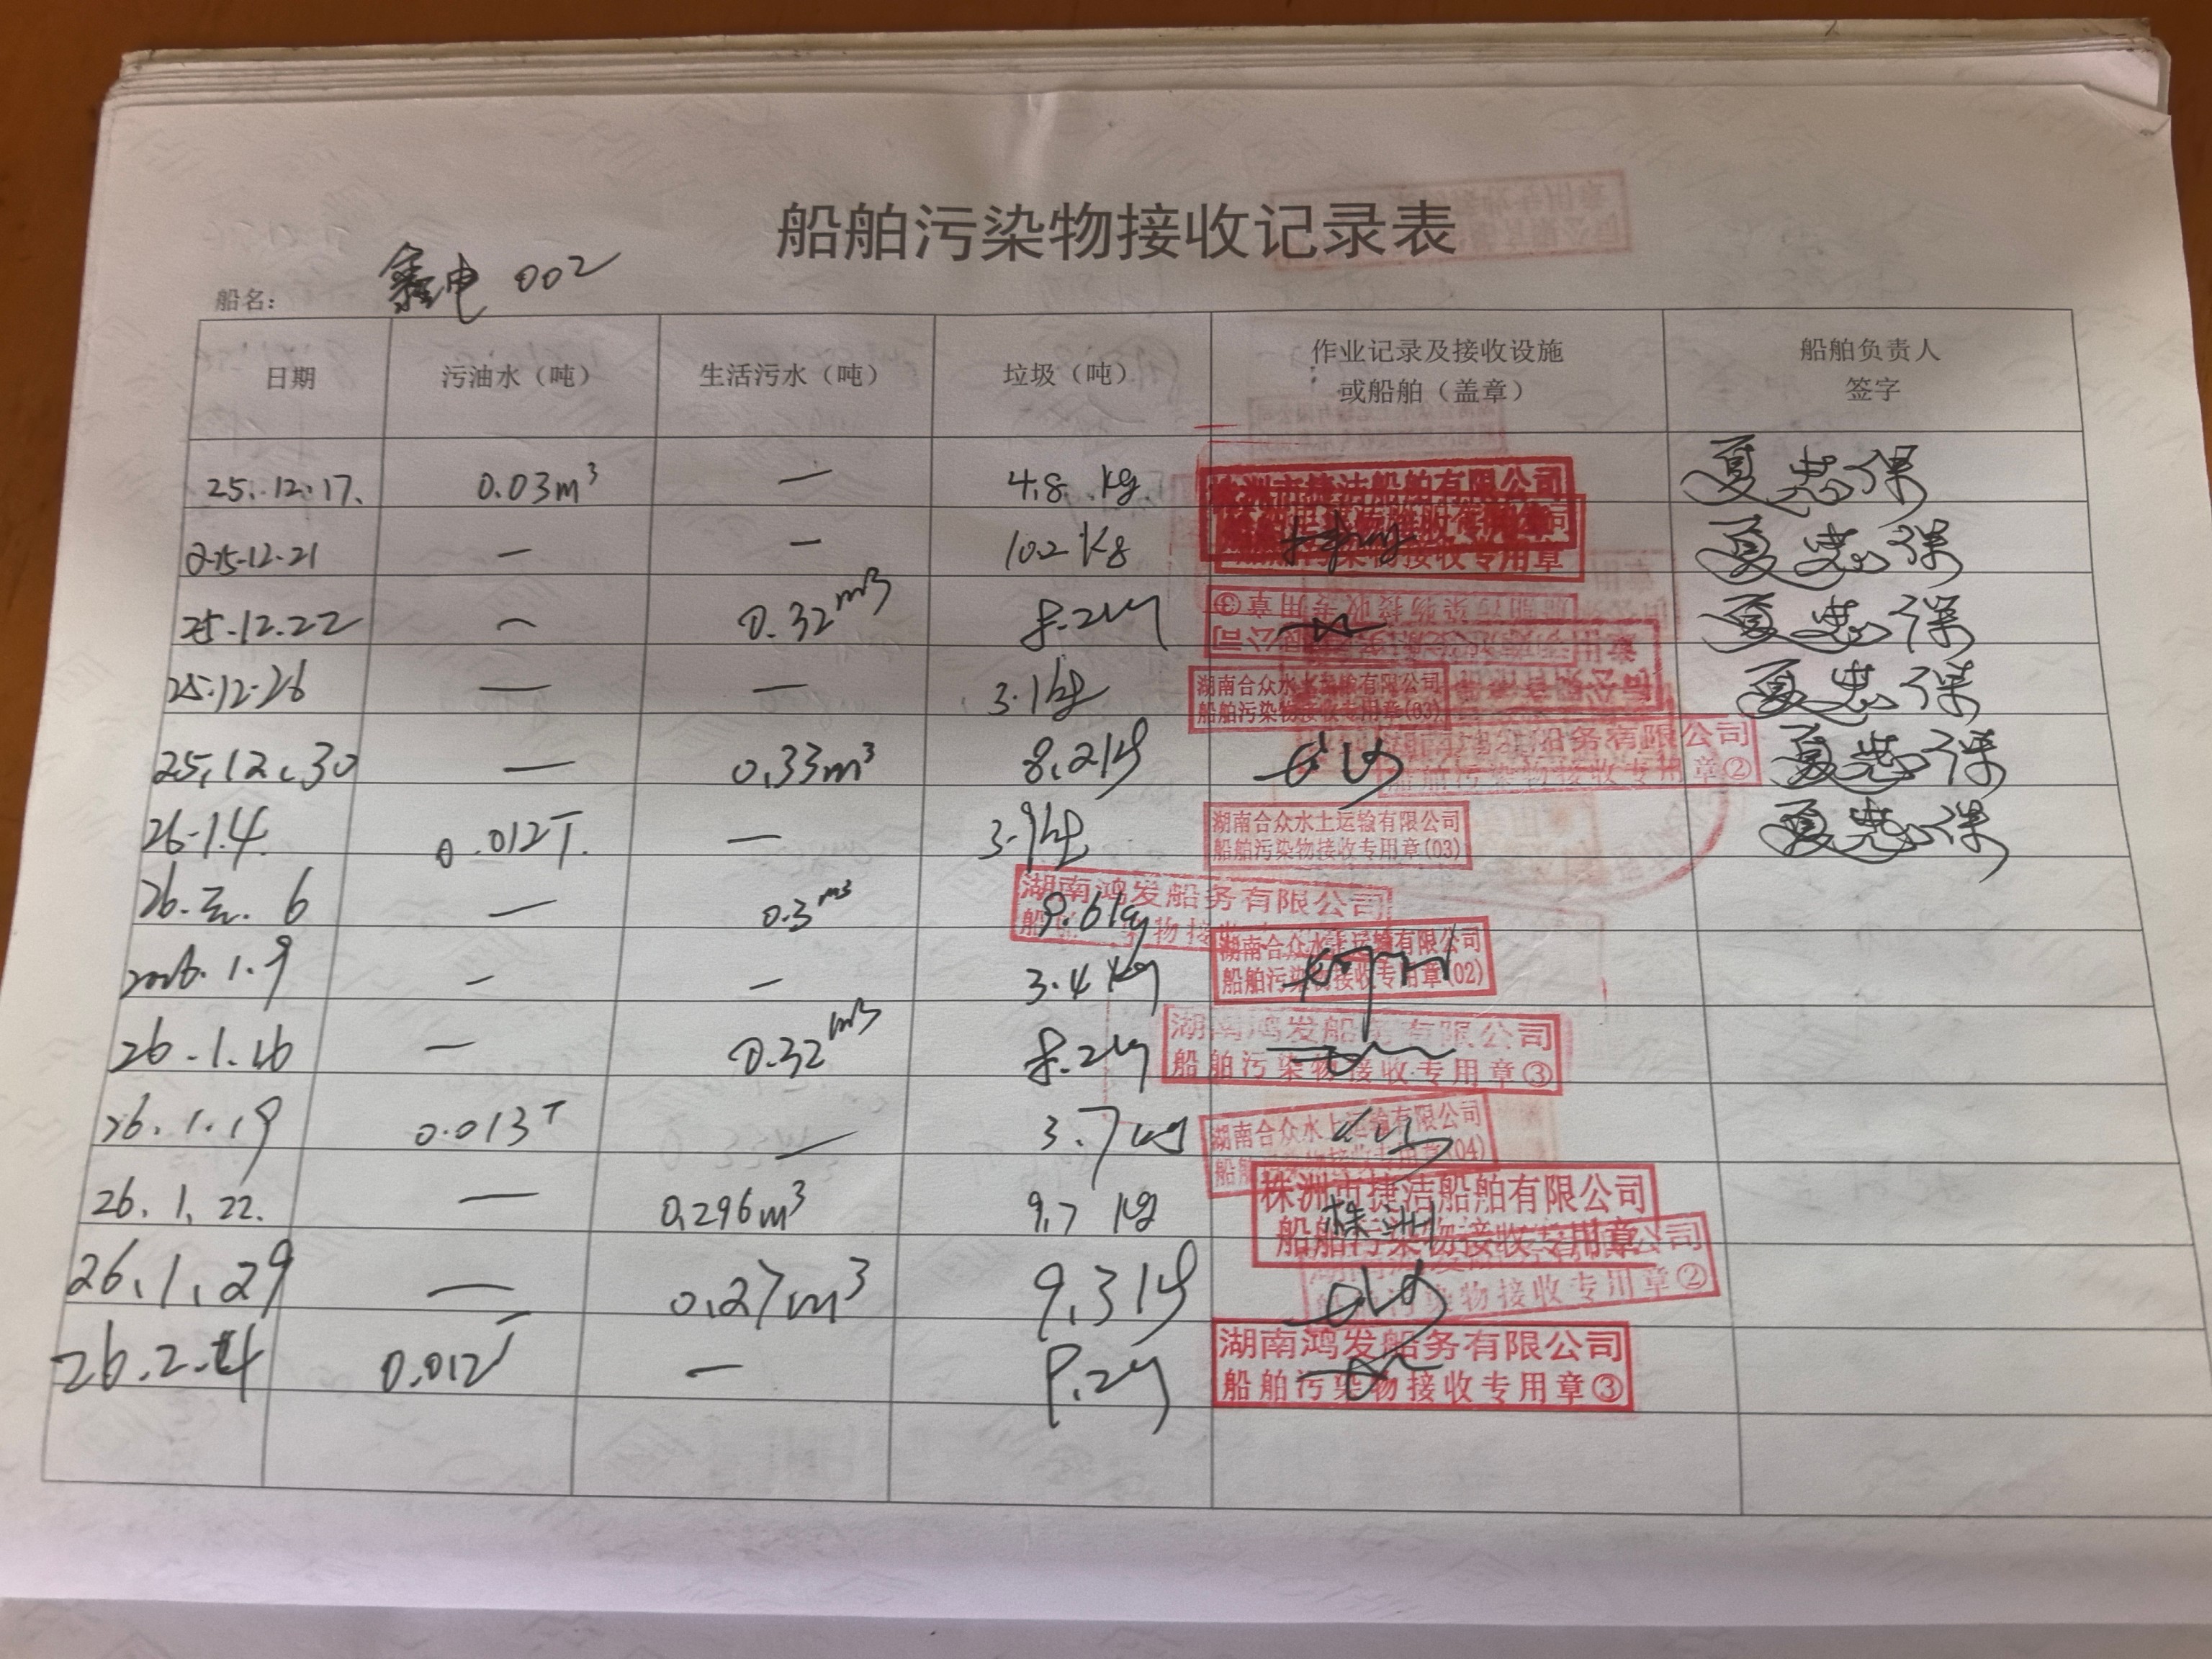 船舶污染物接收记录表
船名： 鑫电 002
日期 污油水（吨） 生活污水（吨） 垃圾（吨） 作业记录及接收设施或船舶（盖章） 船舶负责人签字
25.12.17. 0.03m³ — 4.8 kg 株洲市捷洁船舶有限公司 夏忠保
25.12.21 — — 10.2 kg 接收专用章 夏忠保
25.12.22 — 0.32m³ 8.2kg 夏忠保
25.12.26 — — 3.1kg 湖南合众水上运输有限公司 船舶污染物接收专用章(03) 夏忠保
25.12.30 — 0.33m³ 8.2kg 务有限公司 船舶污染物接收专用章② 夏忠保
26.1.4. 0.012T. — 3.9kg 湖南合众水上运输有限公司 船舶污染物接收专用章(03) 夏忠保
26. 6 — 0.3m³ 9.6kg 湖南鸿发船务有限公司
2026.1.9 — — 3.4kg 湖南合众水上运输有限公司 船舶污染物接收专用章(02)
26.1.16 — 0.32m³ 8.2kg 湖南鸿发船务有限公司 船舶污染物接收专用章③
26.1.19 0.013T — 3.7kg 湖南合众水上运输有限公司 (04)
26.1.22. — 0.296m³ 9.7kg 株洲市捷洁船舶有限公司 船舶污染物接收专用章 株洲
26.1.29 — 0.27m³ 9.3kg 公司 物接收专用章②
26.2.4 0.012T — 8.2kg 湖南鸿发船务有限公司 船舶污染物接收专用章③